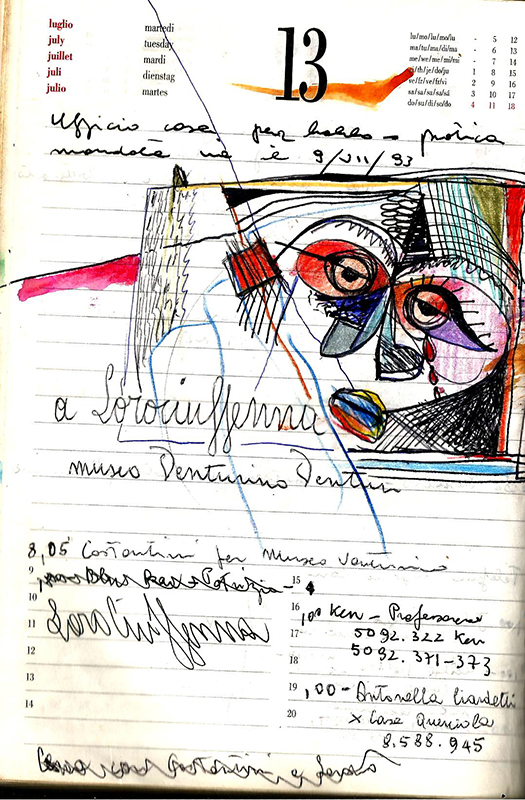 luglio martedi
july tuesday
juillet mardi
juli dienstag
julio martes
13
lu/mo/lu/mo/lu - 5 12
ma/tu/ma/di/ma - 6 13
me/we/me/mi/mi - 7 14
/th/je/do/ju 1 8 15
ve/fr/ve/fr/vi 2 9 16
sa/sa/sa/sa/sá 3 10 17
do/su/di/so/do 4 11 18
Ufficio casa per bollo - pratica
mandata via il 9/VII/93
a Lorociuffenna
museo Venturino Venturi
8,05 Costantini per museo Venturini
9
10
11 Lorociuffenna
12
13
14
15
16,00 Ken - Professore
17 5092.322 Ken
18 5092.371-373
19,00 - Antonella
20 x Casa Querciola
8.588.945